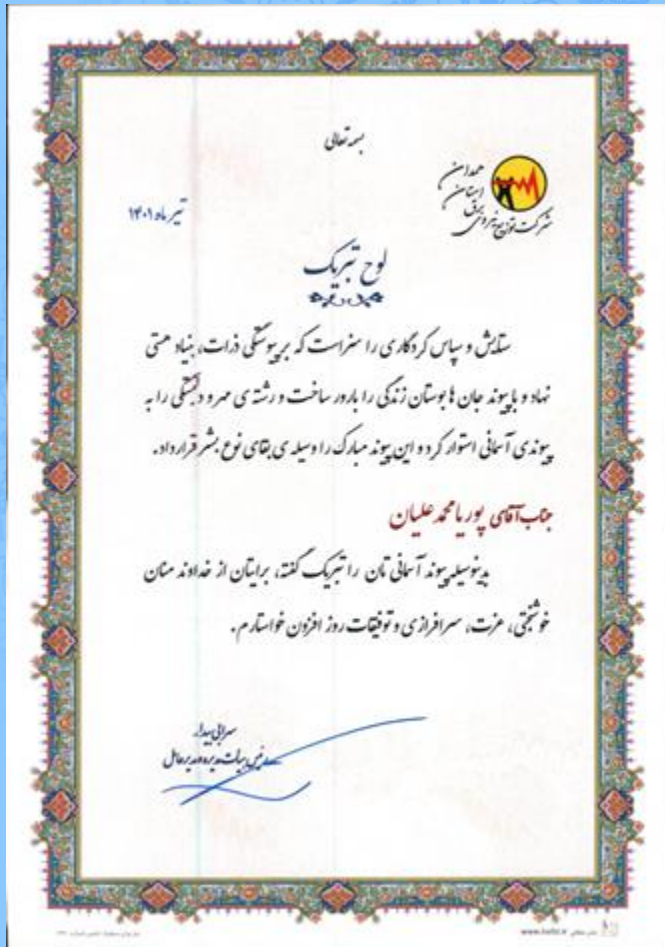 بسمه تعالی
شرکت توزیع نیروی برق
استان
همدان
تیر ماه ۱۴۰۱
لوح تبریک
ستایش و سپاس کردگاری را سزاست که بر پیوستگی ذرات، بنیاد هستی
نهاد و با پیوند جان ها بوستان زندگی را بارور ساخت و رشته ی مهر و دلبستگی را به
پیوندی آسمانی استوار کرد و این پیوند مبارک را وسیله ی بقای نوع بشر قرار داد.
جناب آقای پوریا محمدعلیان
بدینوسیله پیوند آسمانی تان را تبریک گفته، برایتان از خداوند منان
خوشبختی، عزت، سرافرازی و توفیقات روز افزون خواستارم.
سرابی بیدار
رئیس هیات مدیره و مدیرعامل